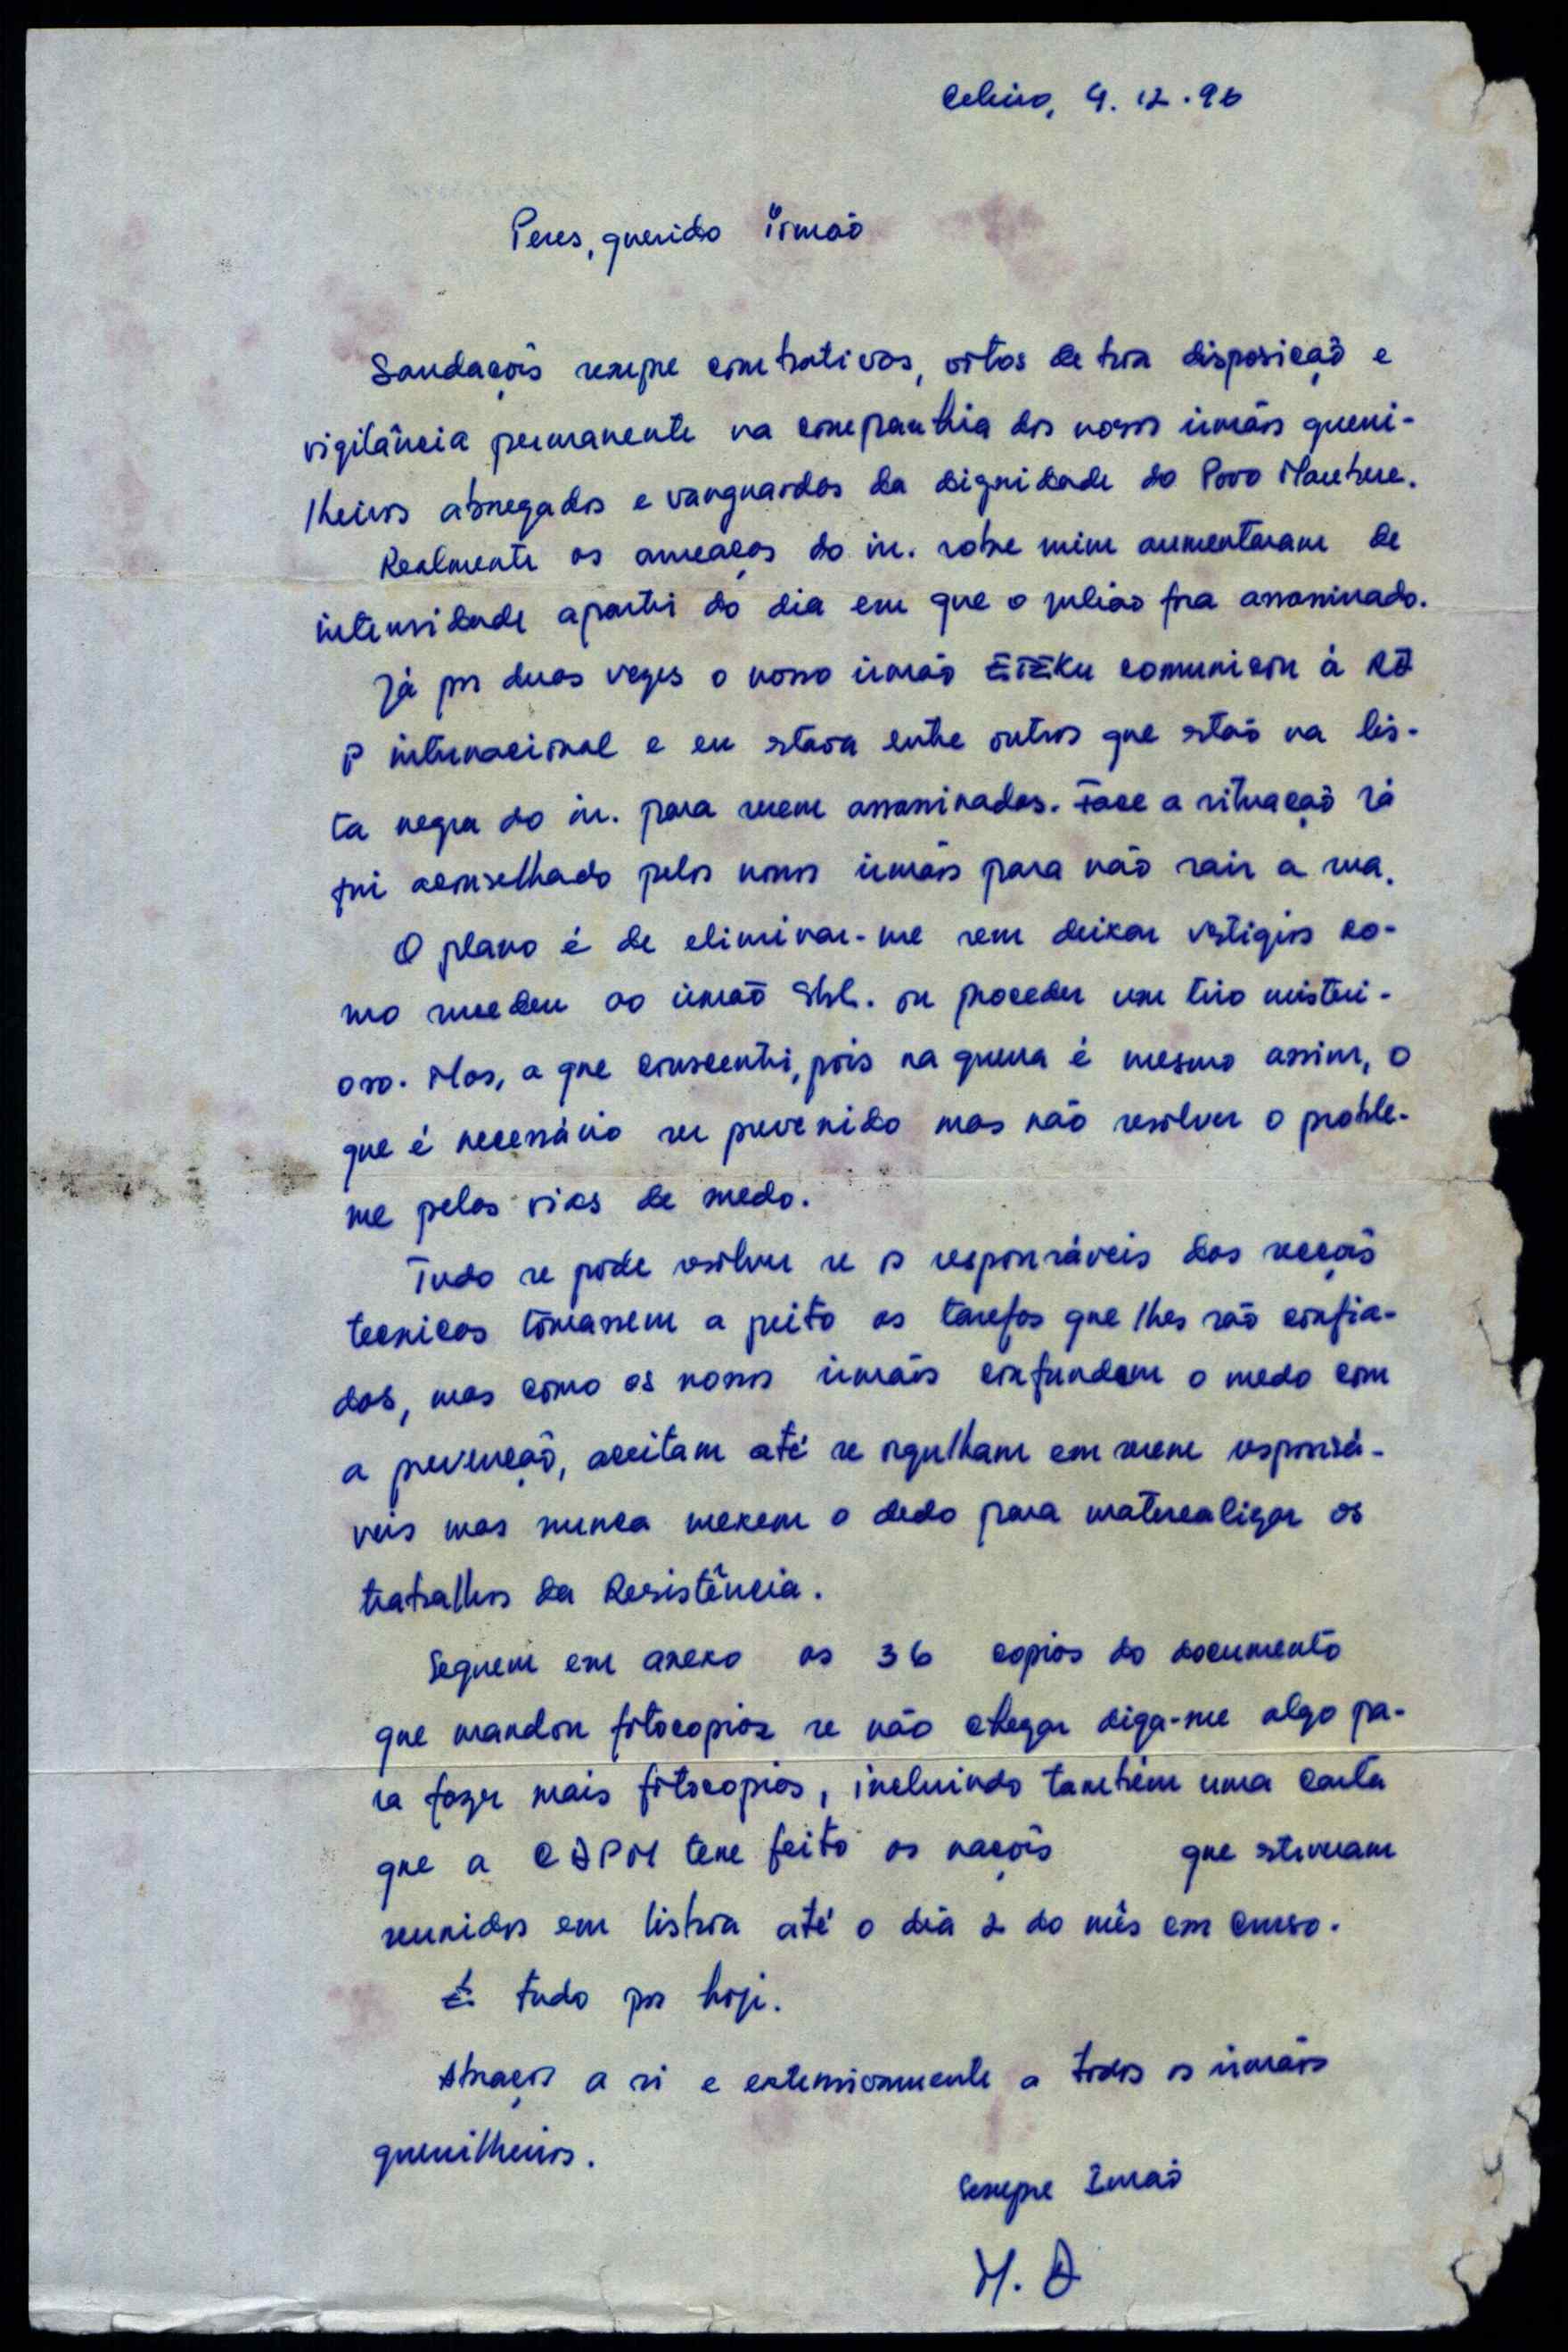 Celeiro, 9.12.96
Peres, querido irmão
Saudaçõis sempre combativas, votos de boa disposição e
vigilância permanente na companhia dos nossos irmãos guerri-
lheiros abnegados e vanguardas da dignidade do Povo Maubere.
Realmente as ameaças do in. sobre mim aumentaram de
intensidade apartri do dia em que o julião fora assassinado.
Já por duas vezes o nosso irmão comunicou à RD
P internacional e eu estava entre outros que estão na lis-
ta negra do in. para serem assassinados. Face a situação já
fui aconselhado pelos nossos irmãos para não sair a rua.
O plano é de eliminar-me sem deixar vestigios co-
mo sucedeu ao irmão Sbl. ou proceder um tiro misteri-
oso. Mas, a que conscentri, pois na guerra é mesmo assim, o
que é necessário ser prevenido mas não resolver o proble-
me pelas vias de medo.
Tudo se pode resolver se os responsáveis das secçõis
tecnicas tomassem a peito as tarefas que lhes são confia-
das, mas como os nossos irmãos confundem o medo com
a prevenção, aceitam até se orgulham em serem responsá-
veis mas nunca mexem o dedo para materealizar os
trabalhos da Resistência.
Seguem em anexo as 36 copias do documento
que mandou fotocopiar se não chegar diga-me algo pa-
ra fazer mais fotocopias, incluindo também uma carta
que a CDPM teve feito as naçõis que estiveram
reunidos em lisboa até o dia 2 do mês em curso.
É tudo por hoje.
Abraços a si e extensionmente a todos os irmãos
guerrilheiros.
Sempre Irmão
M. D